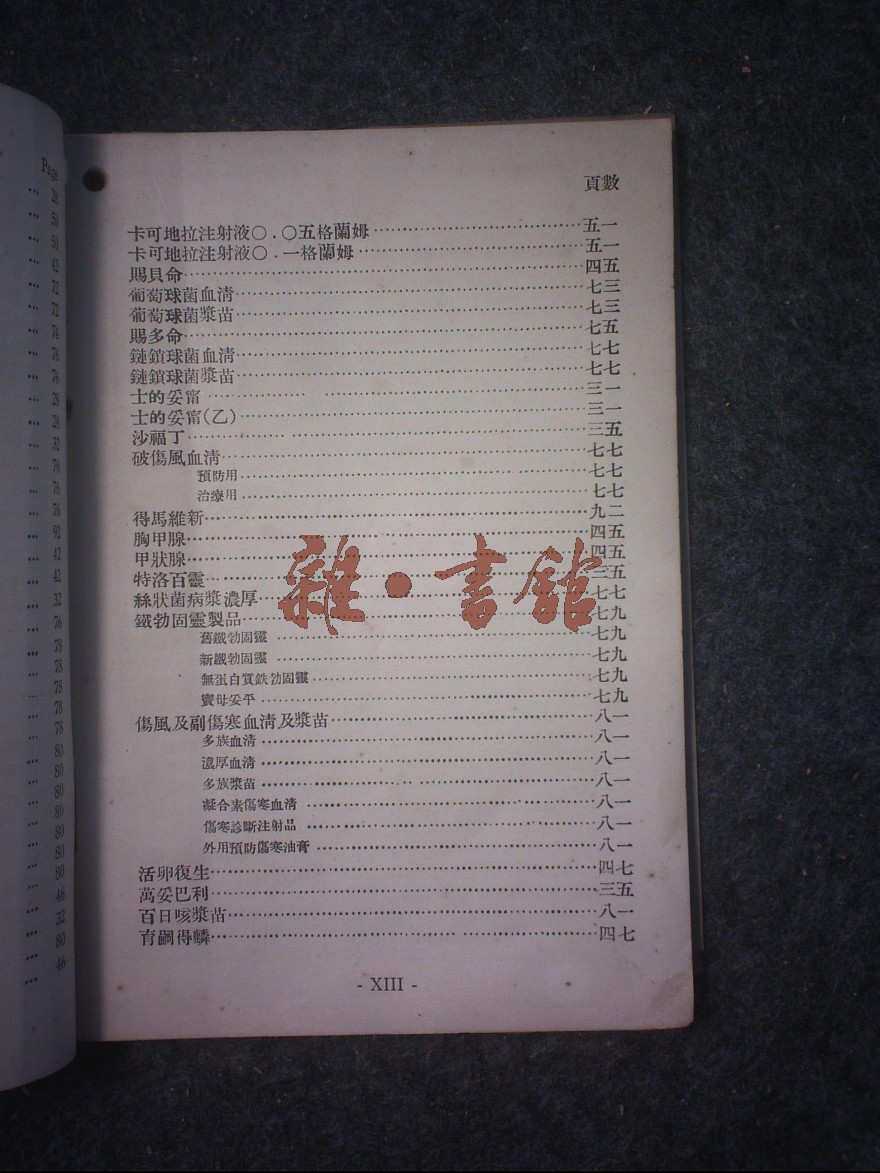 Page
28
50
50
42
72
72
74
76
76
28
28
32
76
76
76
92
42
42
32
76
78
78
78
78
78
80
80
80
80
80
80
80
46
32
80
46
頁數
卡可地拉注射液〇.〇五格蘭姆 五一
卡可地拉注射液〇.一格蘭姆 五一
賜貝命 四五
葡萄球菌血清 七三
葡萄球菌漿苗 七三
賜多命 七五
鏈鎖球菌血清 七七
鏈鎖球菌漿苗 七七
士的妥甯 三一
士的妥甯(乙) 三一
沙福丁 三五
破傷風血清 七七
預防用 七七
治療用 七七
得馬維新 九二
胸甲腺 四五
甲狀腺 四五
特洛百靈 三五
絲狀菌病漿濃厚 七七
鐵勃固靈製品 七九
舊鐵勃固靈 七九
新鐵勃固靈 七九
無蛋白質鉄勃固靈 七九
竇母妥平 七九
傷風及副傷寒血清及漿苗 八一
多族血清 八一
濃厚血清 八一
多族漿苗 八一
凝合素傷寒血清 八一
傷寒診斷注射品 八一
外用預防傷寒油膏 八一
活卵復生 四七
萬妥巴利 三五
百日咳漿苗 八一
育嗣得麟 四七
- XIII -
雜·書館